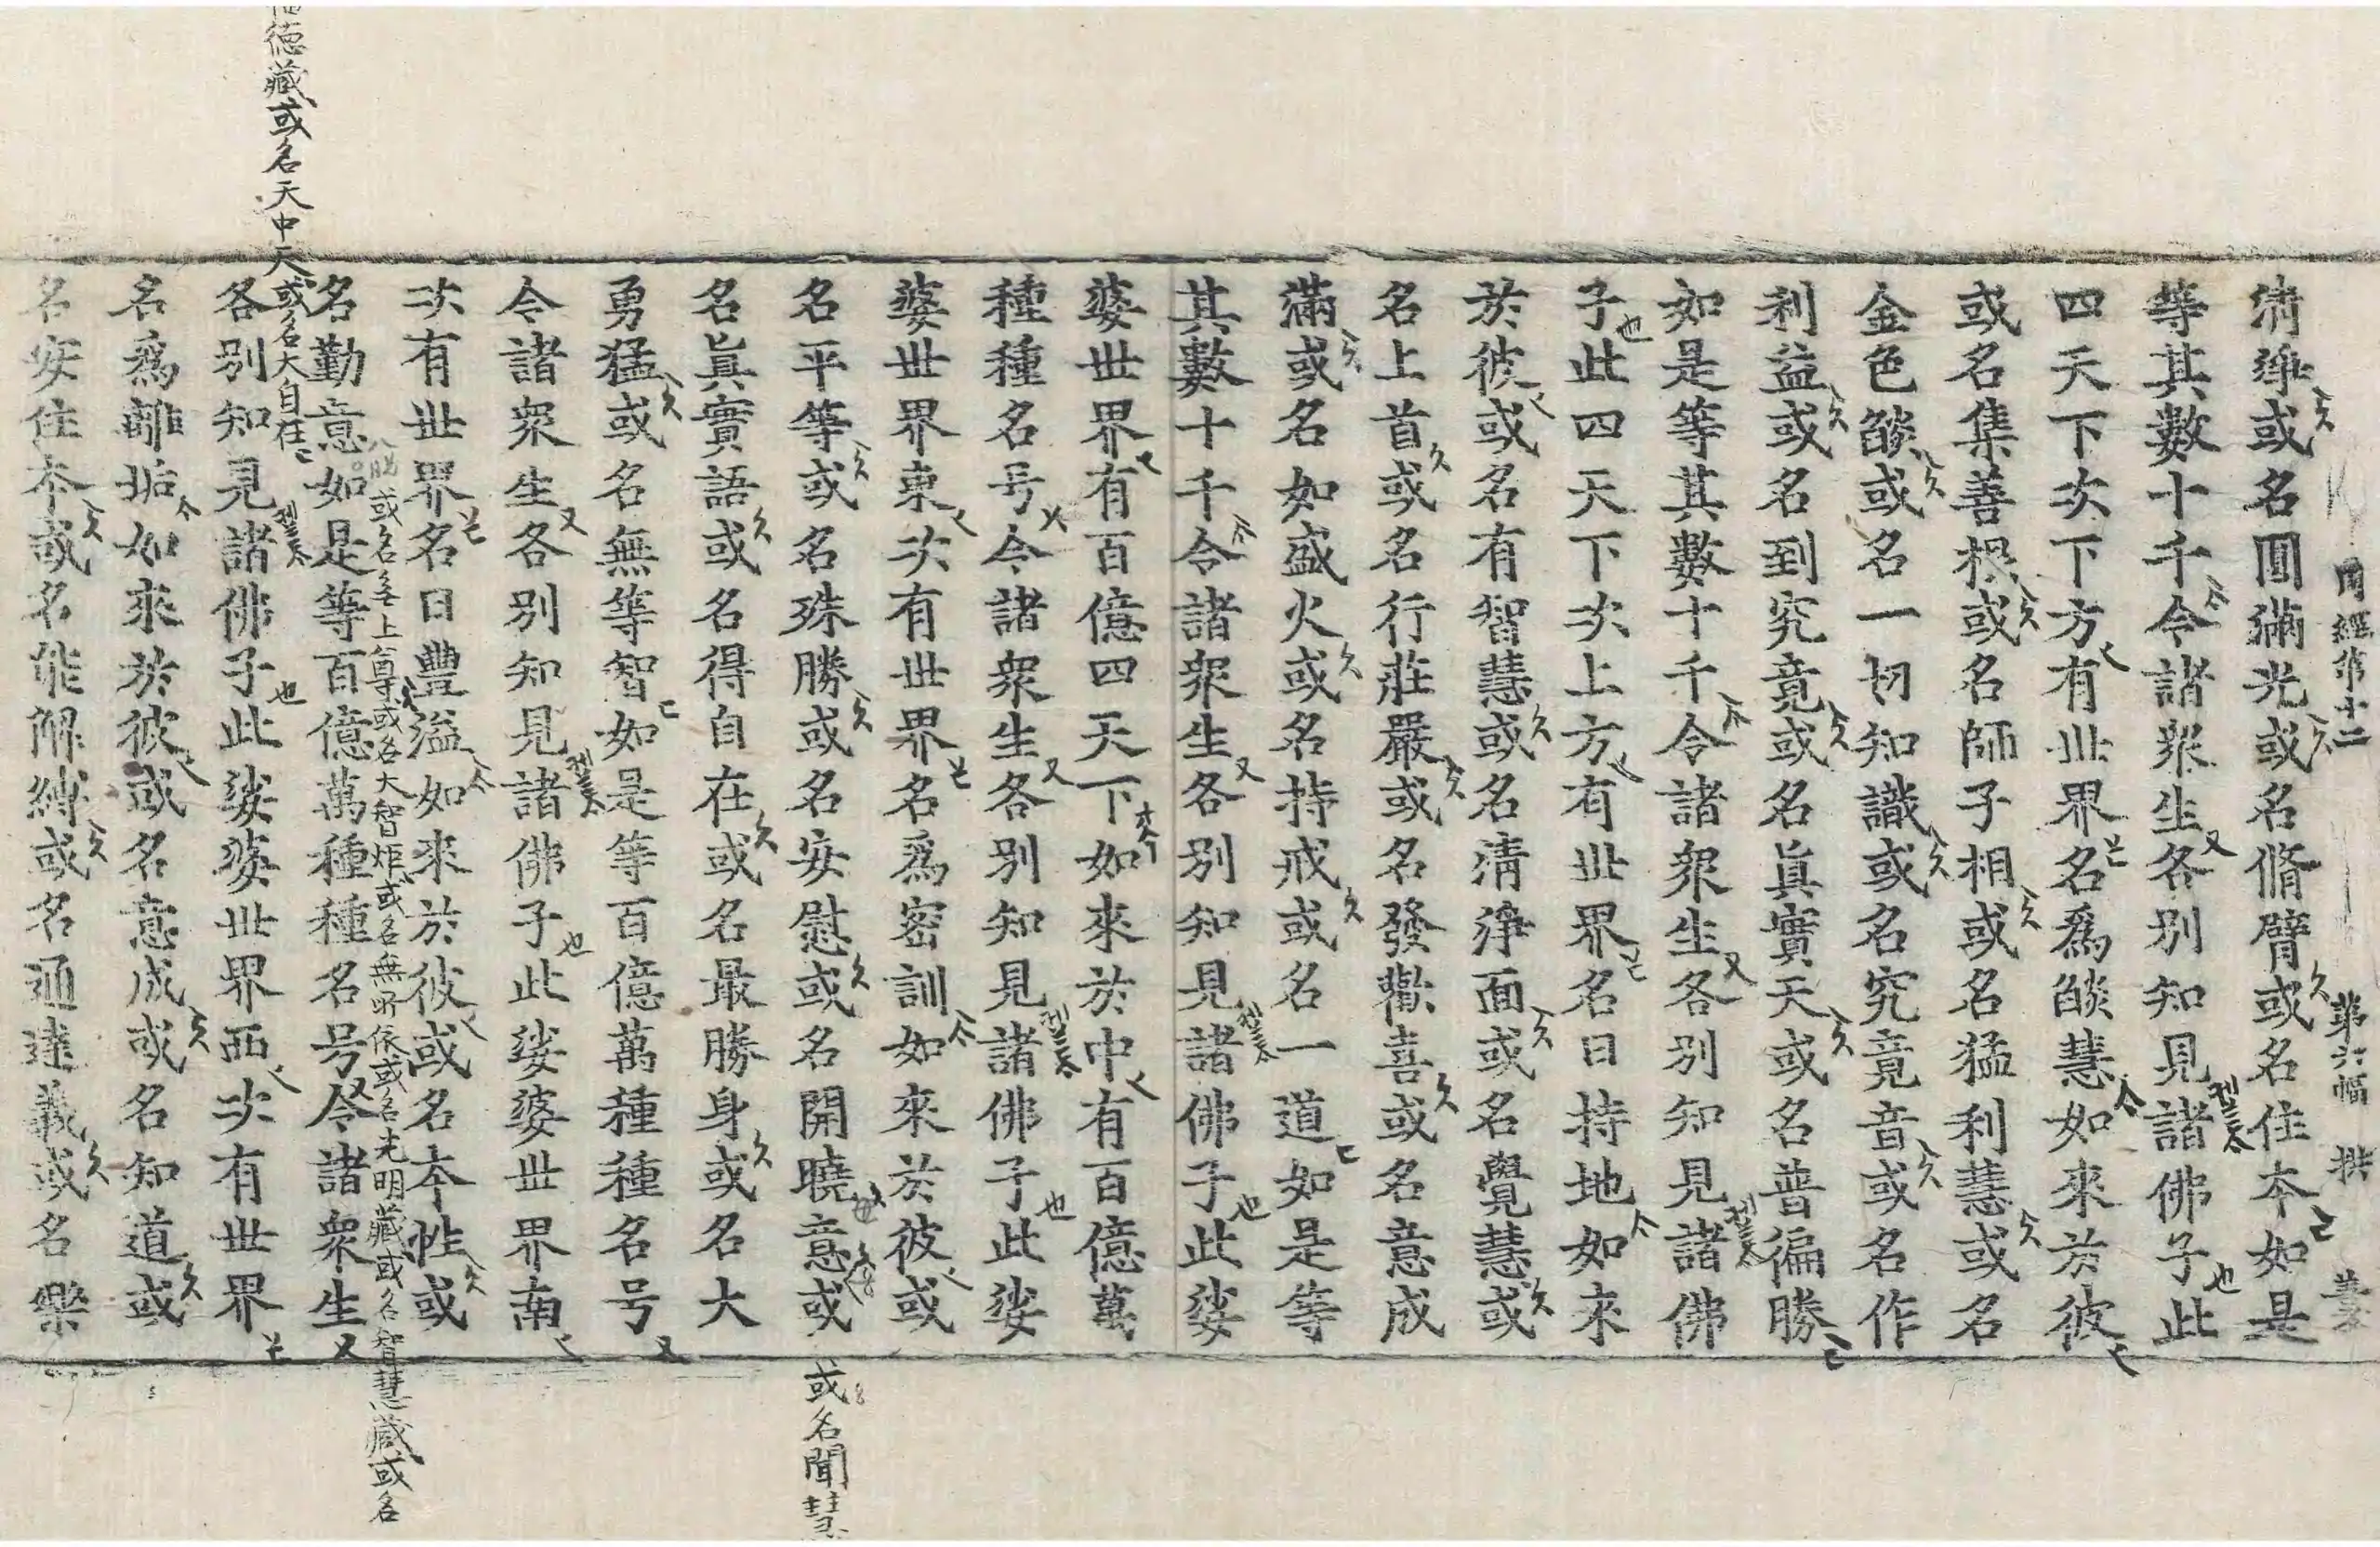 周經第十二 第六幅
清淨或名圓滿光或名脩臂或名住本如是
等其數十千令諸衆生各別知見諸佛子此
四天下次下方有世界名爲𦦨慧如來於彼
或名集善根或名師子相或名猛利慧或名
金色𦦨或名一切知識或名究竟音或名作
利益或名到究竟或名眞實天或名普徧勝
如是等其數十千令諸衆生各別知見諸佛
子此四天下次上方有世界名曰持地如來
於彼或名有智慧或名淸淨面或名覺慧或
名上首或名行莊嚴或名發歡喜或名意成
滿或名如盛火或名持戒或名一道如是等
其數十千令諸衆生各別知見諸佛子此娑
婆世界有百億四天下如來於中有百億萬
種種名号令諸衆生各別知見諸佛子此娑
婆世界東次有世界名爲密訓如來於彼或
名平等或名殊勝或名安慰或名開曉意或
或名聞慧
名眞實語或名得自在或名最勝身或名大
勇猛或名無等智如是等百億萬種種名号
令諸衆生各別知見諸佛子此娑婆世界南
次有世界名曰豐溢如來於彼或名本性或
或名無上尊或名大智炬或名無所依或名光明藏或名智慧藏或名
名勤意如是等百億萬種種名号令諸衆生
德藏或名天中天或名大自在
各別知見諸佛子此娑婆世界西次有世界
名爲離垢如來於彼或名意成或名知道或
名安住本或名能解縛或名通達義或名樂